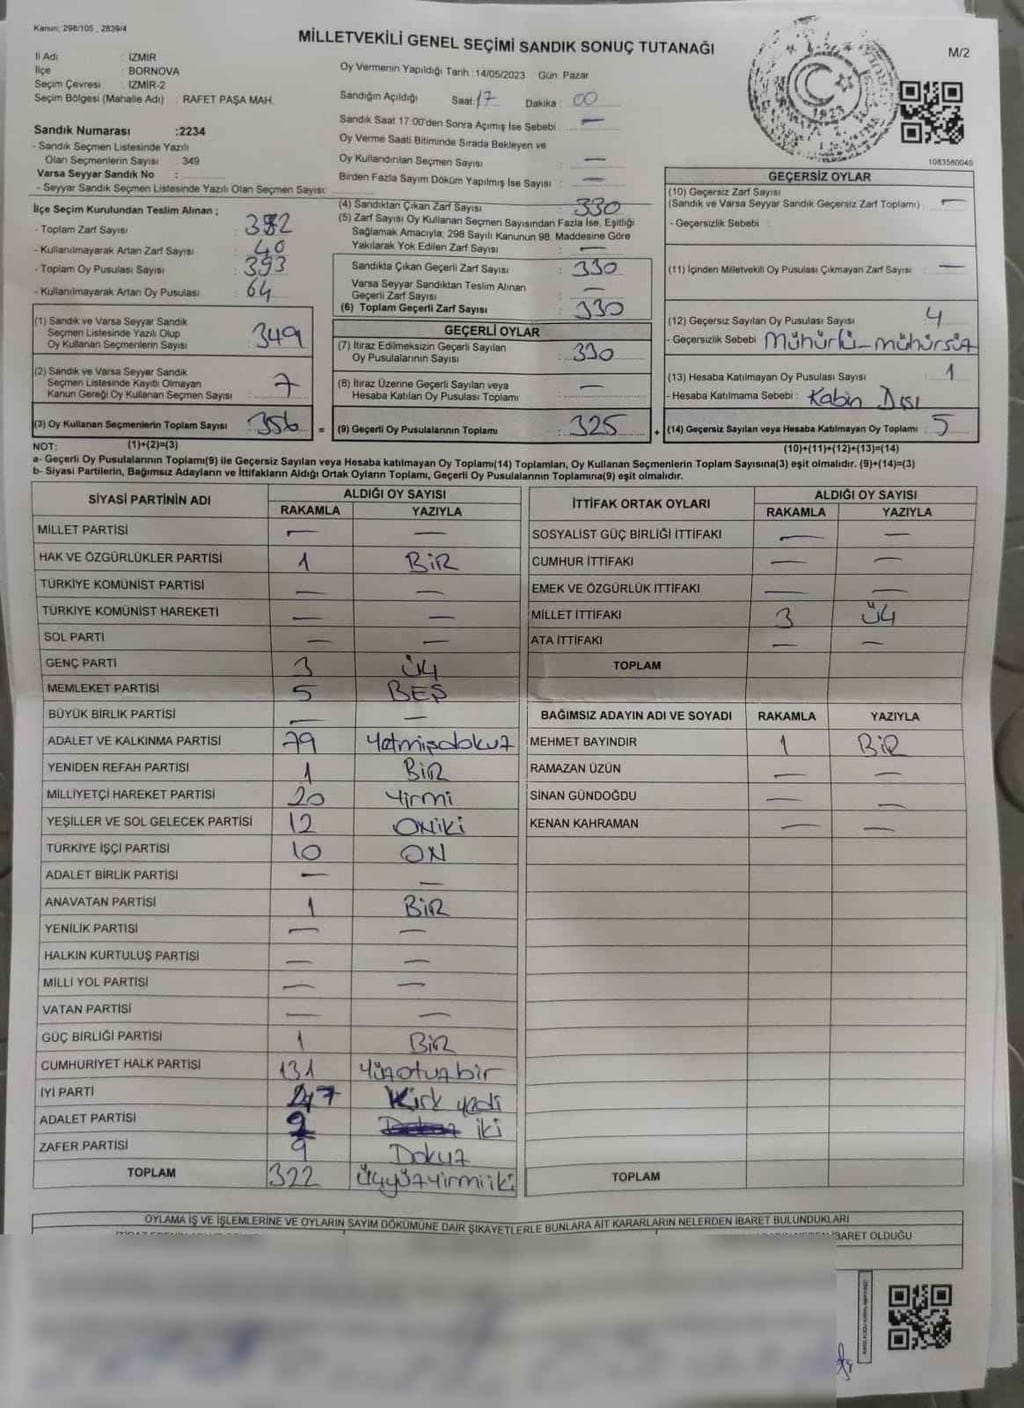 Kanun: 298/105 , 2839/4
MİLLETVEKİLİ GENEL SEÇİMİ SANDIK SONUÇ TUTANAĞI
M/2
İl Adı : İZMİR
İlçe : BORNOVA
Seçim Çevresi : İZMİR-2
Seçim Bölgesi (Mahalle Adı) : RAFET PAŞA MAH.
Oy Vermenin Yapıldığı Tarih :14/05/2023 Gün: Pazar
Sandığın Açıldığı Saat: 17 Dakika : 00
Sandık Saat 17:00'den Sonra Açımış İse Sebebi : —
Oy Verme Saati Bitiminde Sırada Bekleyen ve
Oy Kullandırılan Seçmen Sayısı —
Birden Fazla Sayım Döküm Yapılmış İse Sayısı : —
1923
1083580040
Sandık Numarası :2234
- Sandık Seçmen Listesinde Yazılı
Olan Seçmenlerin Sayısı 349
Varsa Seyyar Sandık No :
- Seyyar Sandık Seçmen Listesinde Yazılı Olan Seçmen Sayısı:
İlçe Seçim Kurulundan Teslim Alınan ;
- Toplam Zarf Sayısı : 382
- Kullanılmayarak Artan Zarf Sayısı : 40
- Toplam Oy Pusulası Sayısı : 393
- Kullanılmayarak Artan Oy Pusulası : 64
(1) Sandık ve Varsa Seyyar Sandık
Seçmen Listesinde Yazılı Olup
Oy Kullanan Seçmenlerin Sayısı 349
(2) Sandık ve Varsa Seyyar Sandık
Seçmen Listesinde Kayıtlı Olmayan
Kanun Gereği Oy Kullanan Seçmen Sayısı 7
(3) Oy Kullanan Seçmenlerin Toplam Sayısı 356 =
(4) Sandıktan Çıkan Zarf Sayısı 330
(5) Zarf Sayısı Oy Kullanan Seçmen Sayısından Fazla İse, Eşitliği
Sağlamak Amacıyla; 298 Sayılı Kanunun 98. Maddesine Göre
Yakılarak Yok Edilen Zarf Sayısı : —
Sandıkta Çıkan Geçerli Zarf Sayısı : 330
Varsa Seyyar Sandıktan Teslim Alınan
Geçerli Zarf Sayısı —
(6) Toplam Geçerli Zarf Sayısı : 330
GEÇERLİ OYLAR
(7) İtiraz Edilmeksizin Geçerli Sayılan
Oy Pusulalarının Sayısı : 330
(8) İtiraz Üzerine Geçerli Sayılan veya
Hesaba Katılan Oy Pusulası Toplamı : —
(9) Geçerli Oy Pusulalarının Toplamı : 325 +
GEÇERSİZ OYLAR
(10) Geçersiz Zarf Sayısı
(Sandık ve Varsa Seyyar Sandık Geçersiz Zarf Toplamı) : —
- Geçersizlik Sebebi :
(11) İçinden Milletvekili Oy Pusulası Çıkmayan Zarf Sayısı : —
(12) Geçersiz Sayılan Oy Pusulası Sayısı : 4
- Geçersizlik Sebebi Mühürlü-mühürsüz
(13) Hesaba Katılmayan Oy Pusulası Sayısı : 1
- Hesaba Katılmama Sebebi : Kabin Dışı
(14) Geçersiz Sayılan veya Hesaba Katılmayan Oy Toplamı : 5
NOT: (1)+(2)=(3)
(10)+(11)+(12)+(13)=(14)
a- Geçerli Oy Pusulalarının Toplamı(9) ile Geçersiz Sayılan veya Hesaba katılmayan Oy Toplamı(14) Toplamları, Oy Kullanan Seçmenlerin Toplam Sayısına(3) eşit olmalıdır. (9)+(14)=(3)
b- Siyasi Partilerin, Bağımsız Adayların ve İttifakların Aldığı Ortak Oyların Toplamı, Geçerli Oy Pusulalarının Toplamına(9) eşit olmalıdır.
SİYASİ PARTİNİN ADI ALDIĞI OY SAYISI
RAKAMLA YAZIYLA
MİLLET PARTİSİ — —
HAK VE ÖZGÜRLÜKLER PARTİSİ 1 BİR
TÜRKİYE KOMÜNİST PARTİSİ — —
TÜRKİYE KOMÜNİST HAREKETİ — —
SOL PARTİ — —
GENÇ PARTİ 3 Üç
MEMLEKET PARTİSİ 5 BEŞ
BÜYÜK BİRLİK PARTİSİ — —
ADALET VE KALKINMA PARTİSİ 79 Yetmişdokuz
YENİDEN REFAH PARTİSİ 1 BİR
MİLLİYETÇİ HAREKET PARTİSİ 20 Yirmi
YEŞİLLER VE SOL GELECEK PARTİSİ 12 ONİKİ
TÜRKİYE İŞÇİ PARTİSİ 10 ON
ADALET BİRLİK PARTİSİ — —
ANAVATAN PARTİSİ 1 BİR
YENİLİK PARTİSİ — —
HALKIN KURTULUŞ PARTİSİ — —
MİLLİ YOL PARTİSİ — —
VATAN PARTİSİ — —
GÜÇ BİRLİĞİ PARTİSİ 1 BİR
CUMHURİYET HALK PARTİSİ 131 Yüzotuzbir
İYİ PARTİ 47 Kırk yedi
ADALET PARTİSİ 2 iki
ZAFER PARTİSİ 9 Dokuz
TOPLAM 322 Üçyüzyirmiiki
İTTİFAK ORTAK OYLARI ALDIĞI OY SAYISI
RAKAMLA YAZIYLA
SOSYALİST GÜÇ BİRLİĞİ İTTİFAKI — —
CUMHUR İTTİFAKI — —
EMEK VE ÖZGÜRLÜK İTTİFAKI — —
MİLLET İTTİFAKI 3 Üç
ATA İTTİFAKI — —
TOPLAM
BAĞIMSIZ ADAYIN ADI VE SOYADI RAKAMLA YAZIYLA
MEHMET BAYINDIR 1 BİR
RAMAZAN ÜZÜN — —
SİNAN GÜNDOĞDU — —
KENAN KAHRAMAN — —
TOPLAM
OYLAMA İŞ VE İŞLEMLERİNE VE OYLARIN SAYIM DÖKÜMÜNE DAİR ŞİKAYETLERLE BUNLARA AİT KARARLARIN NELERDEN İBARET BULUNDUKLARI
İBARET OLDUĞU